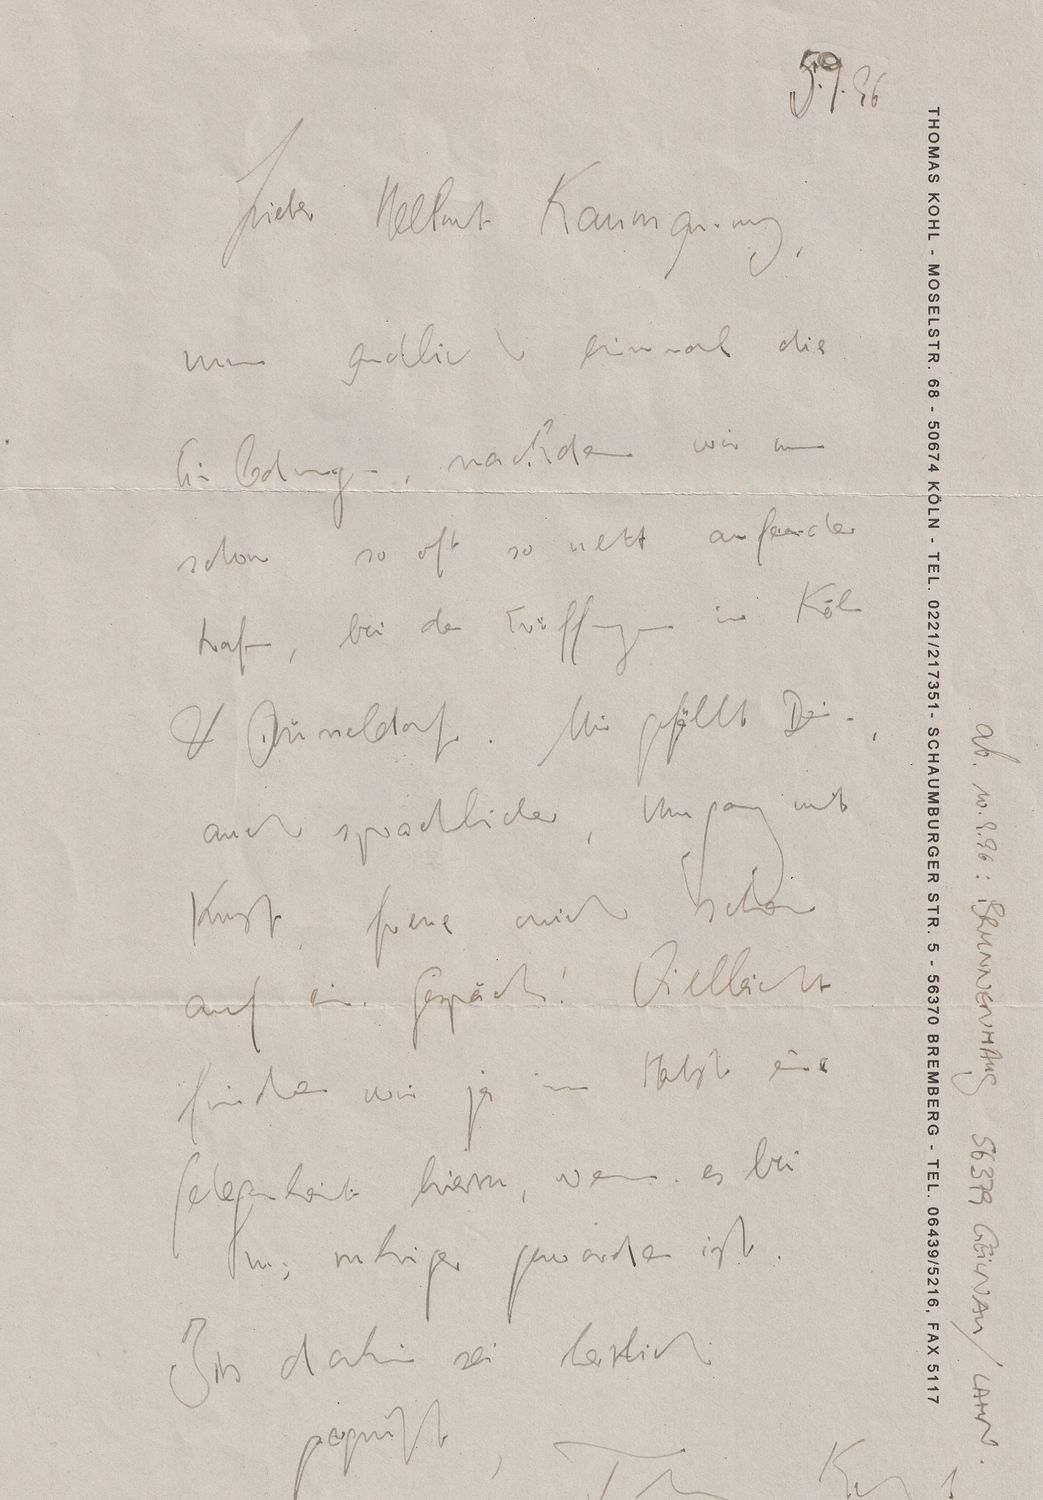 5.9.96
Lieber Hellmut
nun endlich einmal die
Einladung, nachdem wir uns
schon so oft so nett aufeinander
trafen, bei den Eröffnungen in Köln
& Düsseldorf. Mir gefällt Dein,
auch sprachlicher, Umgang mit
Kunst, freue mich schon
auf ein Gespräch! Vielleicht
finden wir ja im Herbst eine
Gelegenheit hierzu, wenn es bei
uns ruhiger geworden ist.
Bis dahin sei herzlich
gegrüßt,
THOMAS KOHL - MOSELSTR. 68 - 50674 KÖLN - TEL. 0221/217351- SCHAUMBURGER STR. 5 - 56370 BREMBERG - TEL. 06439/5216, FAX 5117
ab. 10.9.96: BRUNNENHAUS 56379 GEILNAU/LAHN.